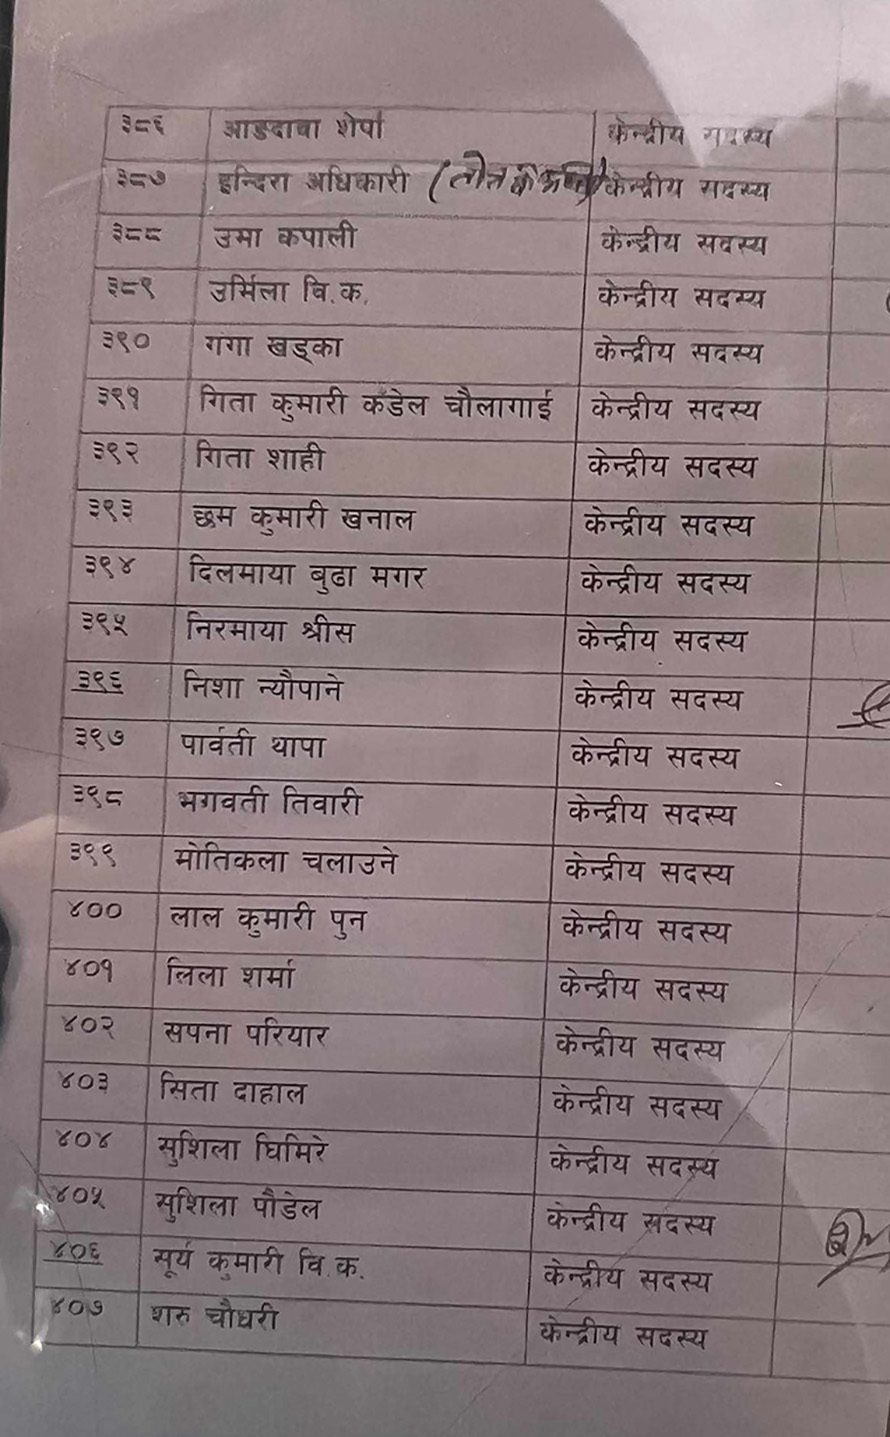 ३८६ आङदावा शेर्पा केन्द्रीय सदस्य
३८७ इन्दिरा अधिकारी केन्द्रीय सदस्य
३८८ उमा कपाली केन्द्रीय सदस्य
३८९ उर्मिला वि.क. केन्द्रीय सदस्य
३९० गंगा खड्का केन्द्रीय सदस्य
३९१ गिता कुमारी कँडेल चौलागाई केन्द्रीय सदस्य
३९२ गिता शाही केन्द्रीय सदस्य
३९३ छम कुमारी खनाल केन्द्रीय सदस्य
३९४ दिलमाया बुढा मगर केन्द्रीय सदस्य
३९५ निरमाया श्रीस केन्द्रीय सदस्य
३९६ निशा न्यौपाने केन्द्रीय सदस्य
३९७ पार्वती थापा केन्द्रीय सदस्य
३९८ भगवती तिवारी केन्द्रीय सदस्य
३९९ मोतिकला चलाउने केन्द्रीय सदस्य
४०० लाल कुमारी पुन केन्द्रीय सदस्य
४०१ लिला शर्मा केन्द्रीय सदस्य
४०२ सपना परियार केन्द्रीय सदस्य
४०३ सिता दाहाल केन्द्रीय सदस्य
४०४ सुशिला घिमिरे केन्द्रीय सदस्य
४०५ सुशिला पौडेल केन्द्रीय सदस्य
४०६ सूर्य कुमारी वि.क. केन्द्रीय सदस्य
४०७ शरु चौधरी केन्द्रीय सदस्य